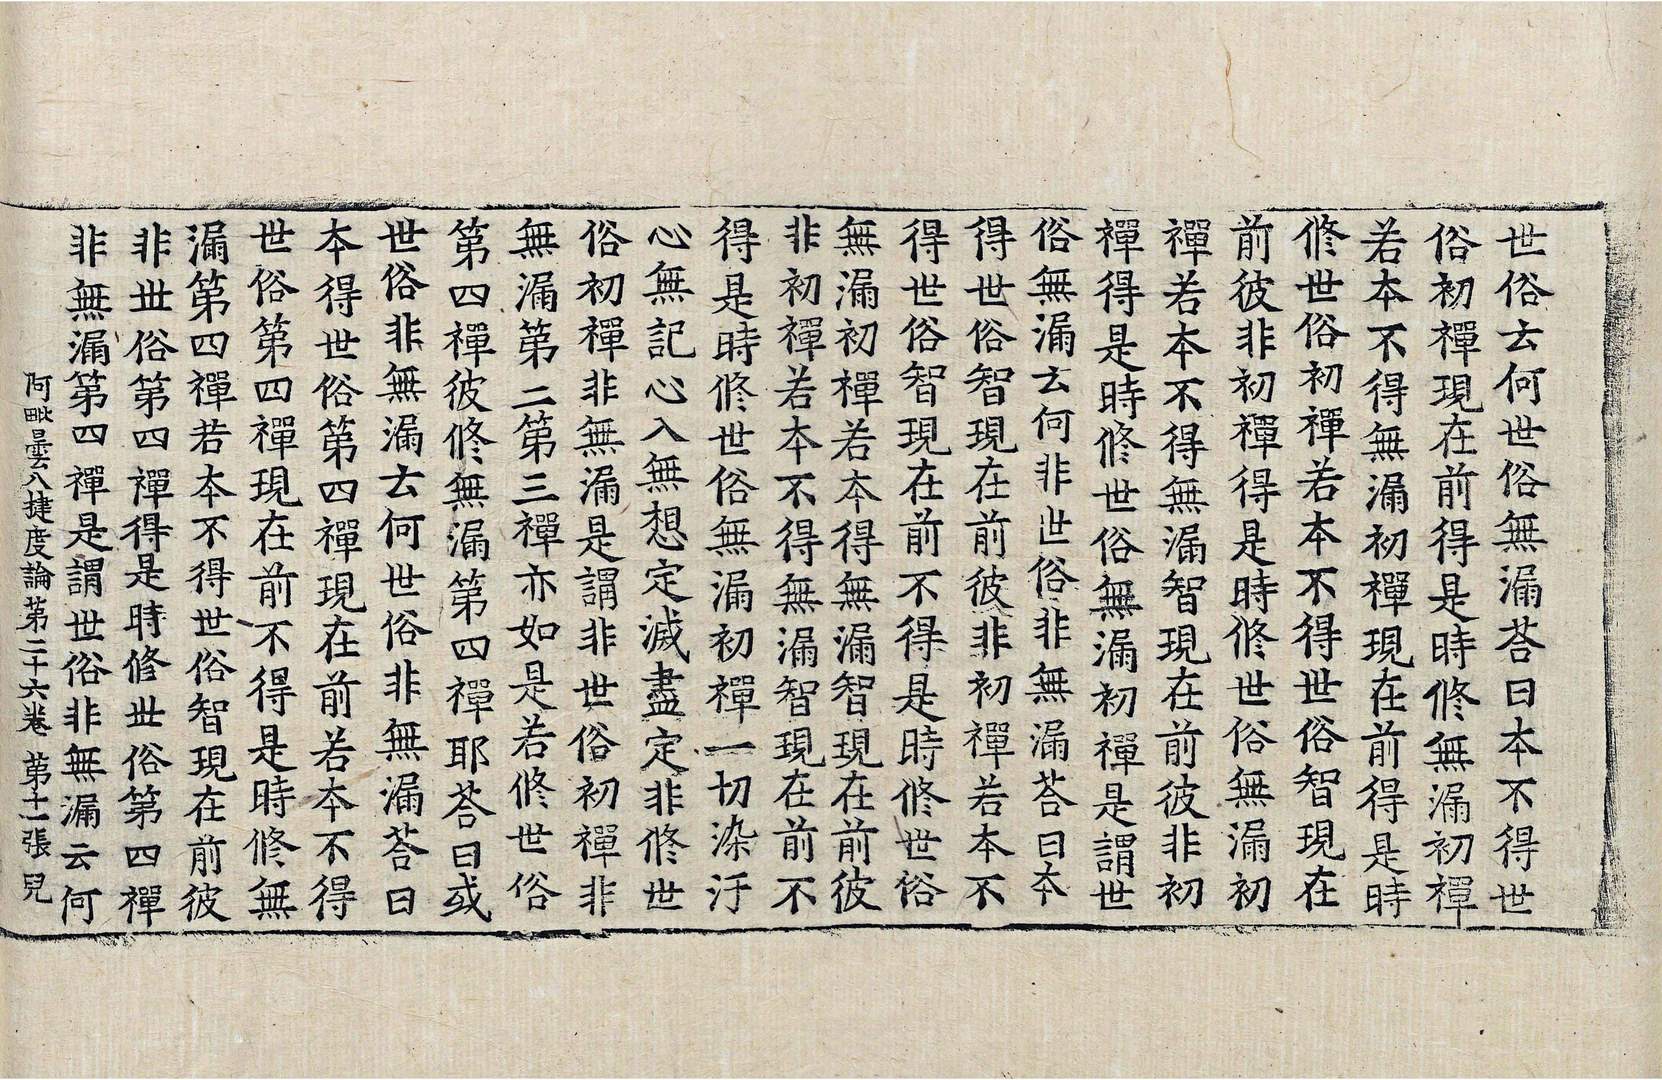 世俗云何世俗無漏荅曰本不得世
俗初禪現在前得是時修無漏初禪
若本不得無漏初禪現在前得是時
修世俗初禪若本不得世俗智現在
前彼非初禪得是時修世俗無漏初
禪若本不得無漏智現在前彼非初
禪得是時修世俗無漏初禪是謂世
俗無漏云何非世俗非無漏荅曰本
得世俗智現在前彼非初禪若本不
得世俗智現在前不得是時修世俗
無漏初禪若本得無漏智現在前彼
非初禪若本不得無漏智現在前不
得是時修世俗無漏初禪一切染汙
心無記心入無想定滅盡定非修世
俗初禪非無漏是謂非世俗初禪非
無漏第二第三禪亦如是若修世俗
第四禪彼修無漏第四禪耶荅曰或
世俗非無漏云何世俗非無漏荅曰
本得世俗第四禪現在前若本不得
世俗第四禪現在前不得是時修無
漏第四禪若本不得世俗智現在前彼
非世俗第四禪得是時修世俗第四禪
非無漏第四禪是謂世俗非無漏云何
阿毗曇八揵度論第二十六卷 第十一張 兒